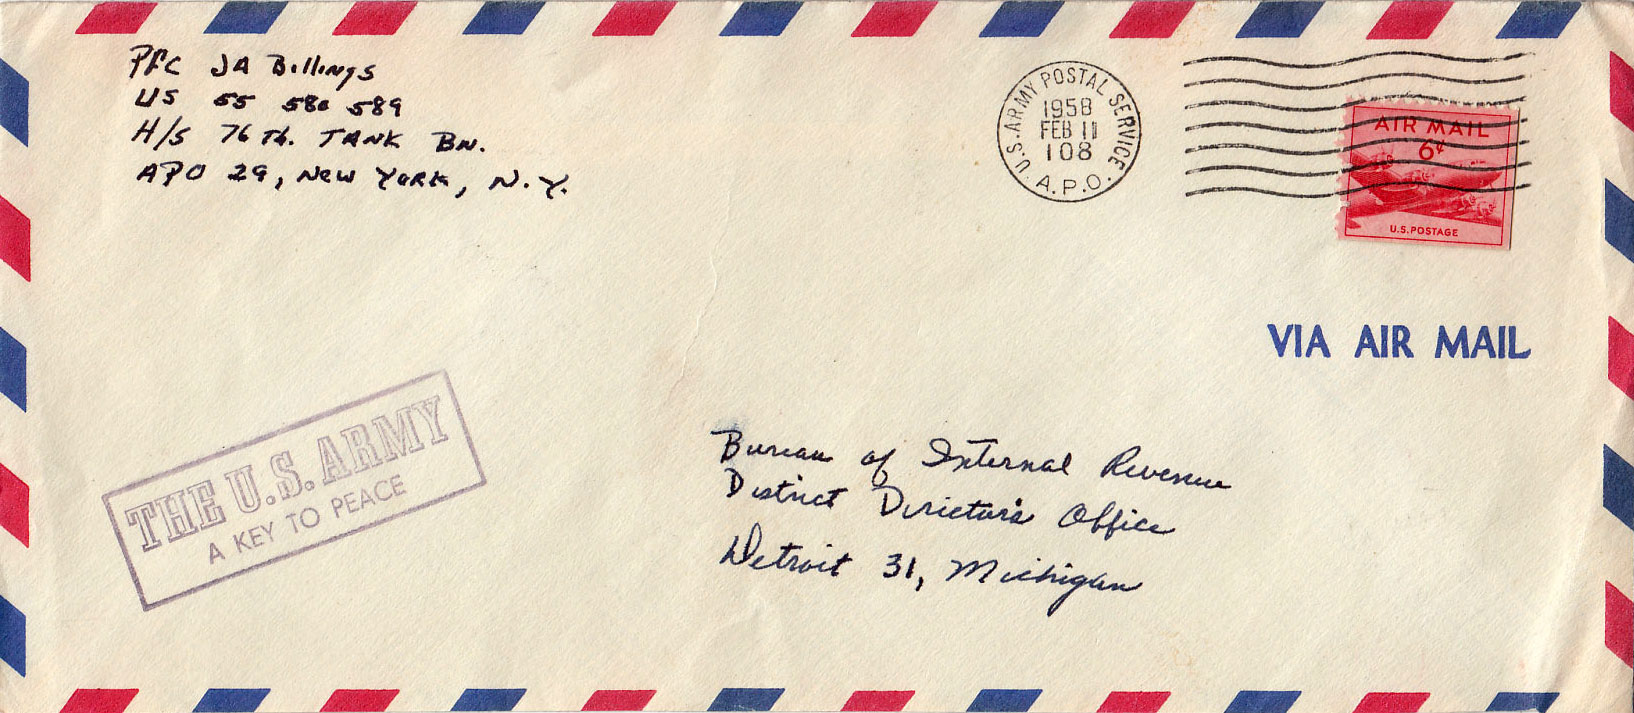 PFC JA Billings
US 55 580 589
H/S 76 Th. TANK BN.
APO 29, New York, N.Y.
U.S. ARMY POSTAL SERVICE
1958
FEB 11
108
A.P.O.
AIR MAIL
6¢
U.S. POSTAGE
VIA AIR MAIL
THE U.S. ARMY
A KEY TO PEACE
Bureau of Internal Revenue
District Director's Office
Detroit 31, Michigan